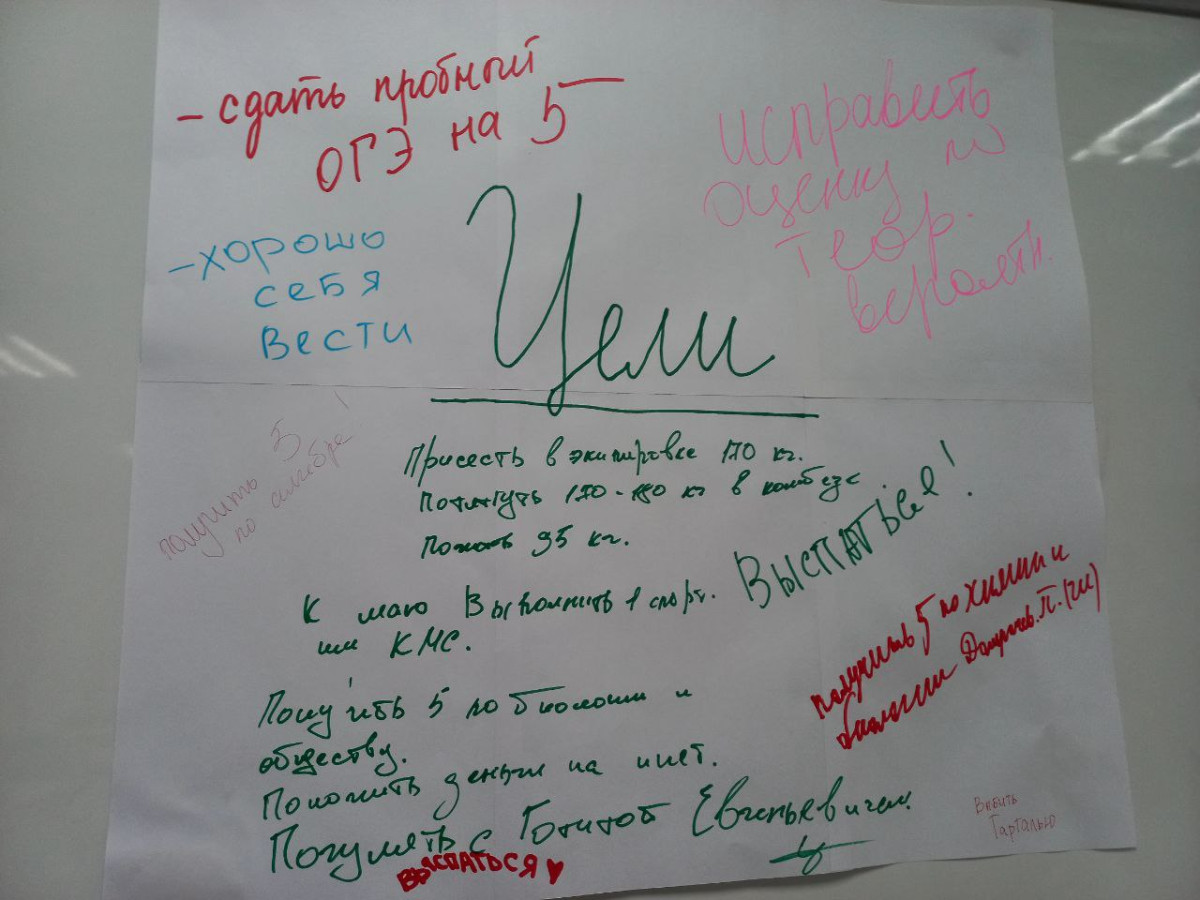 - сдать пробный
ОГЭ на 5
исправить
оценку по
теор.
вероятн.
- хорошо
себя
вести
Цели
получить 5
по алгебре!
Присесть в экипировке 170 кг.
Потянуть 170-180 кг в комбезе.
Пожать 95 кг.
К маю Выполнить 1 спорт.
или КМС.
ВЫСПАТЬСЯ!
Получить 5 по химии и
биологии
Получить 5 по биологии и
обществу.
Положить деньги на инет.
Погулять с Евгеньевичем.
ВЫСПАТЬСЯ ♥
Выбить
Тарталью